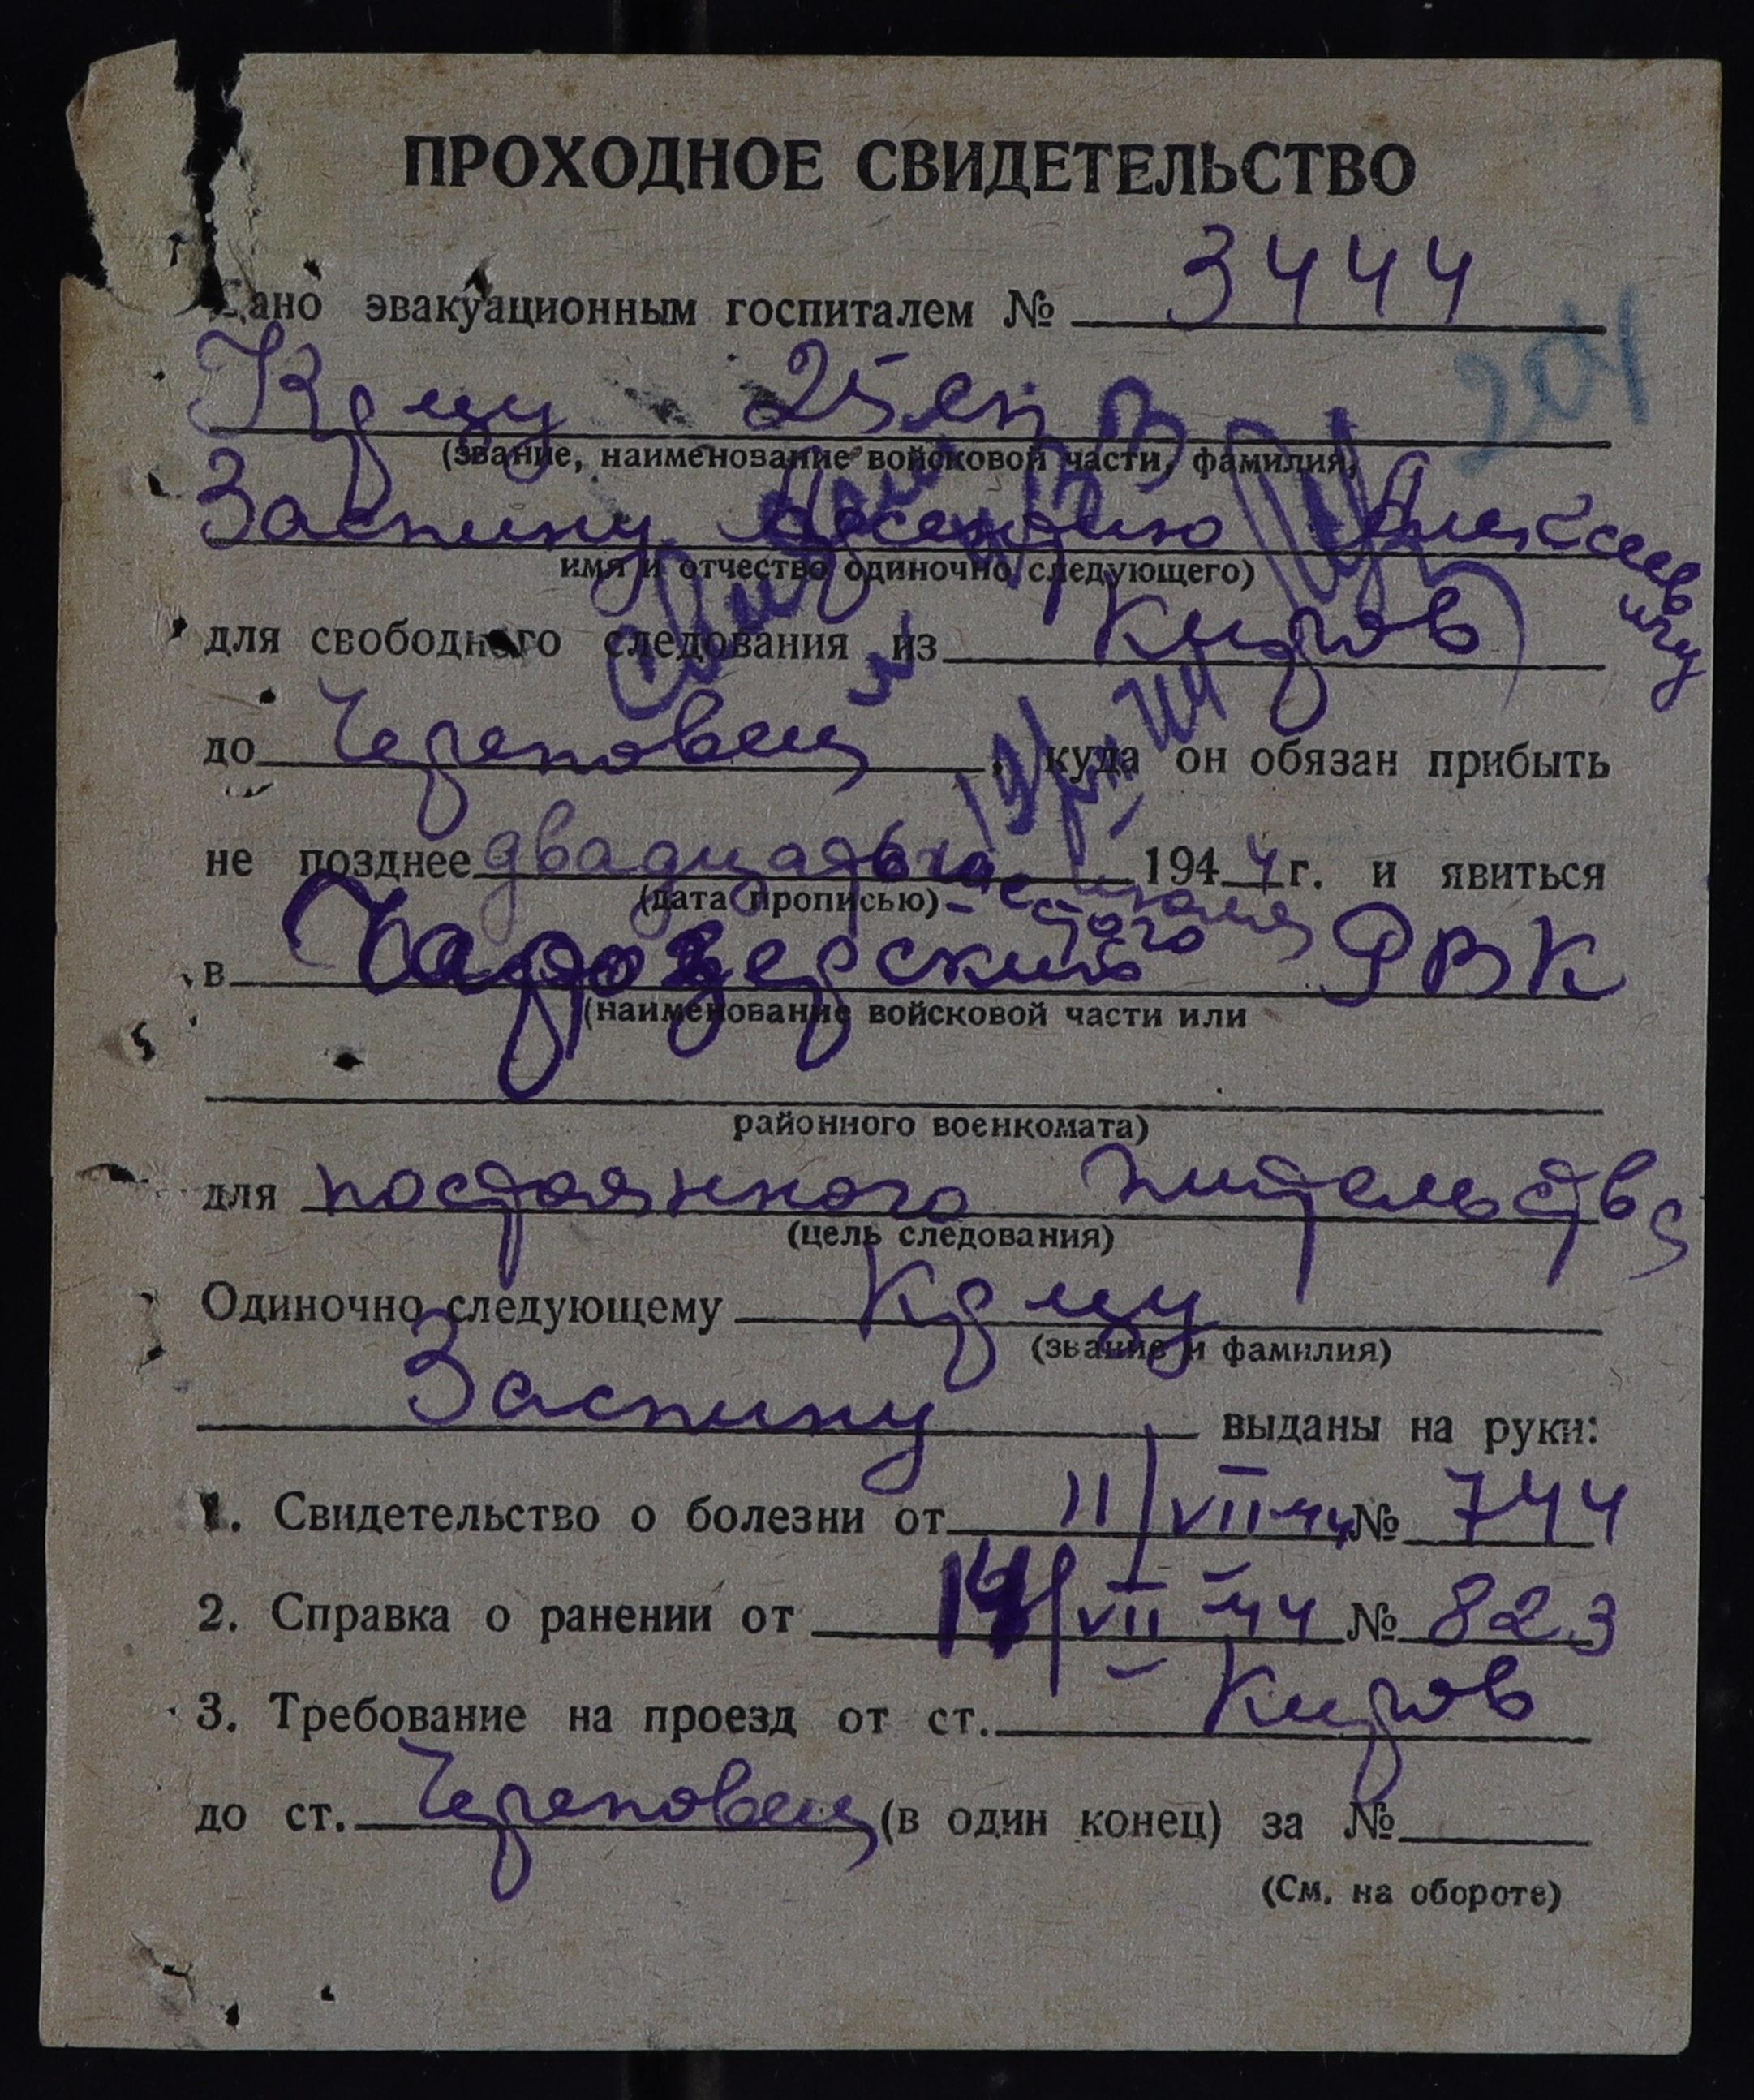 ПРОХОДНОЕ СВИДЕТЕЛЬСТВО
Дано эвакуационным госпиталем № 3444
204
Кр-цу 25 сп
(звание, наименование войсковой части, фамилия,
Заспину Арсентию Алексеевичу
имя и отчество одиночно следующего)
для свободного следования из Киров
до Череповец, куда он обязан прибыть
не позднее двадцатого июля 1944 г. и явиться
(дата прописью)
в Чарозерский РВК
(наименование войсковой части или
районного военкомата)
для постоянного жительства
(цель следования)
Одиночно следующему Кр-цу
(звание и фамилия)
Заспину выданы на руки:
1. Свидетельство о болезни от 11/VII-44 № 744
2. Справка о ранении от 14/VII-44 № 823
3. Требование на проезд от ст. Киров
до ст. Череповец (в один конец) за №
(См. на обороте)